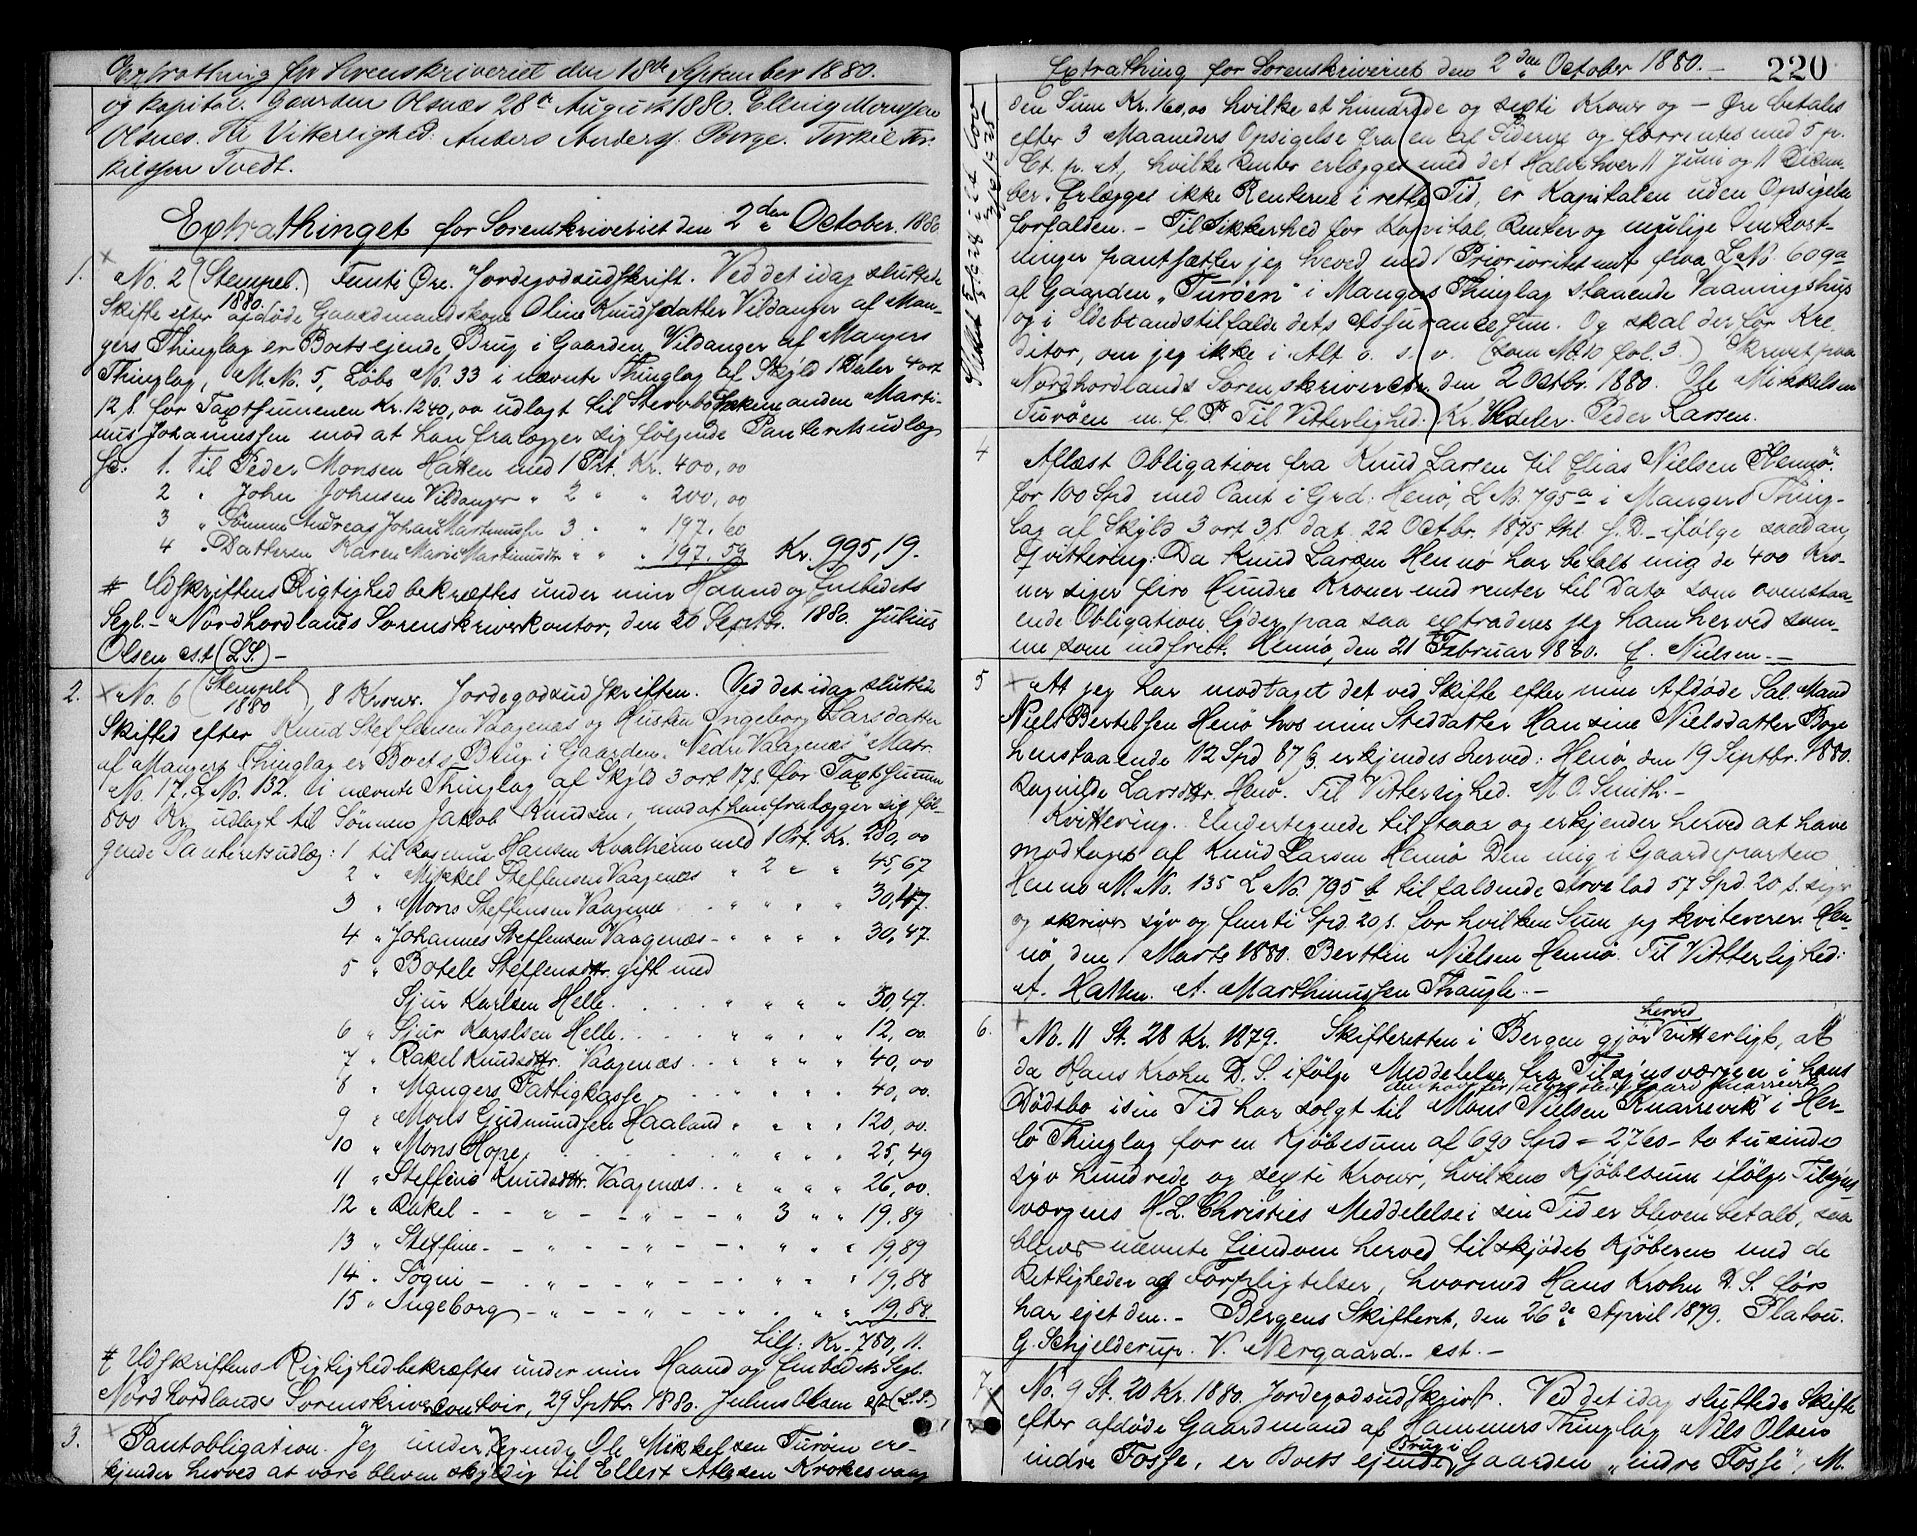 Extrathing for Sorenskriveriet den 18de September 1880.
og Kapital. Gaarden Olsnæs 28de August 1880. Elling Monssen
Olsnes. Til Vitterlighed: Anders Anders. Borge. Torkil Tor-
kilssen Tvedt.
Extrathinget for Sorenskriveriet den 2den October 1880
1. No. 2 (Stempel 1880.) Femti Øre. Jordegodsudskrift. Ved det idag sluttede
Skifte efter afdøde Gaardmandskone Oline Knudsdatter Vildanger af Man-
gers Thinglag er Boets ejende Brug i Gaarden Vildanger af Mangers
Thinglag, M. No. 5, Løbe No. 33 i nævnte Thinglag af Skyld 1 Daler 4 ort
12 s. for Taxtsummen Kr. 1240,00 udlagt til Stervboenkemanden Marti-
nus Johannessen mod at han fralægger sig følgende Panteretsudlæg
1. Til Peder Monsen Hatten med 1 Prt. Kr. 400,00
2 " John Johnsen Vildanger " 2 " " 200,00
3 " Sønnen Andreas Johan Martinussen 3 " " 197,60
4 " Datteren Karen Marie Martinusdtr " " " 197,59 Kr. 995,19.
# Udskriftens Rigtighed bekræftes under min Haand og Embedets
Segl. – Nordhordlands Sorenskriverkontor, den 20 Septbr. 1880. Julius
Olsen cst. (L.S.) –
2. No. 6 (Stempel 1880), 8 Kroner. Jordegodsudskriften. Ved det idag sluttede
Skifted efter Knud Steffensen Vaagenæs og Hustru Ingeborg Larsdatter
af Mangers Thinglag er Boets Brug i Gaarden "Nedre Vaagenæs" Matr.
No. 17, L No. 132. i nævnte Thinglag af Skyld 3 ort 17 s. for Taxtsummen
800 Kr. udlagt til Sønnen Jakob Knudsen, mod at han fralægger sig føl-
gende Panteretsudlæg: 1 til Rasmus Hansen Kvalheim med 1 Prt. Kr. 280,00
2 " Mikkel Steffensen Vaagenæs " 2 " " 45,67
3 " Mons Steffensen Vaagenæs " " " " 30,47.
4 " Johannes Steffensen Vaagenæs – " " " " 30,47.
5 " Botele Steffensdtr. gift med
Sjur Karlsen Helle. . . . " " " " 30,47.
6 " Sjur Karslsen Helle. . . . " " " " 12,00.
7 " Rakel Knudsdtr. Vaagenæs . . " " " " 40,00
8 " Mangers Fattigkasse, . . . " " " " 40,00.
9 " Mons Gudmundsen Haaland " " " " 120,00.
10 " Mons Hope, . . . . " " " " 25,49
11 " Steffine Knudsdtr. Vaagenæs . . " " " " 26,00.
12 " Rakel – – " – – " – – " 3 " " 19,89
13 " Steffine – – " – – " – – " " " " 19,89
14 " Sogni – – " – – " – – " " " " 19,88
15 " Ingeborg – " – – " – – " " " " 19,88.
tils: Kr. 780,11.
# Udskriftens Rigtighed bekræftes under min Haand og Embedets Segl.
Nordhordlands Sorenskrivercontoir, 29 Septbr. 1880. Julius Olsen cst (L.S.)
3. Pantobligation. Jeg undertegnede Ole Mikkelsen Turøen er-
kjender herved at være bleven skyldig til Ellert Atlesen Krokesvaag
Extrathing for Sorenskriveriet den 2den October 1880. – 220
den Sum Kr. 160,00 hvilke et hundrede og sexti Kroner og – Øre betales
efter 3 Maaneders Opsigelse fra en af Siderne og forrentes med 5 p.
Ct. p. A, hvilke Renter erlægges med det Halve hver 11 Juni og 11 Decem-
ber. Erlægges ikke Renterne i rette Tid, er Kapitalen uden Opsigelse
forfalden. – Til Sikkerhed for Kapital, Renter og mulige Omkost-
ninger pantsætter jeg herved med 1 Prioritet mit paa L No. 609a
af Gaarden "Turöen" i Mangers Thinglag staaende Vaaningshus
og i Ildebrandstilfælde dets Assurancesum. Og skal derfor Kre-
ditor, om jeg ikke i Alt o. s. v. (som No. 10 fol. 3) Skrevet paa
Nordhordlands Sorenskrivercontr. den 2 Octbr. 1880. Ole Mikkelsen
Turøen m. f. P. Til Vitterlighed: Kr. Vedeler. Peder Larsen.
4 Aflæst Obligation fra Knud Larsen til Elias Nielsen "Hennø"
for 100 Spd med Pant i Grd: Henø, L No. 795a i Mangers Thing-
lag af Skyld 3 ort 3 s. dat. 22 Octbr. 1875 thl. s. D – ifølge saadan
Qvittering: Da Knud Larsen Hennø har betalt mig de 400 Kro-
ner siger fire Hundre Kroner med renter til Dato som ovenstaa-
ende Obligation lyder paa saa extraderes jeg ham herved sam-
me som indfriet. Hennø, den 21 Februar 1880. E. Nielsen. –
5 At jeg har modtaget det ved Skifte efter min Afdøde Sal. Mand
Niels Bertelsen Henø hos min Steddatter Hansine Nielsdatter Boge
henstaaende 12 Spd 87 s. erkjendes herved: Henø, den 19 Septbr. 1880.
Ragnilde Larsdtr. Henø. Til Vitterlighed. M. O. Smith. –
Kvittering. Undertegnede tilstaar og erkjender herved at have
modtaget af Knud Larsen Hennø Den mig i Gaardeparten
Henno M No. 135 L No. 795 b tilfaldende Arvelod 57 Spd 20 s. siger
og skriver syv og femti Spd. 20 s. for hvilken Sum jeg kviterer. Hen-
nø, den 1 Marts 1880. Berttin Nielsen Hennø. Til Vitterlighed:
A. Hatten. A. Marthinussen Thaugle. –
6. No. 11 St. 28 Kr. 1879. Skifteretten i Bergen gjør herved vitterligt, at
da Hans Krohn D. S. ifølge Meddelelse fra Tilsynsværgen i hans
Dødsbo i sin Tid har solgt til Mons Nielsen Knarrevik i Her-
lø Thinglag for en Kjøbesum af 690 Spd = 2760 – to tusinde
syv hundrede og sexti Kroner, hvilken Kjøbesum ifølge Tilsyns-
værgens H. L. Christies Meddelelse i sin Tid er bleven betalt, saa
bliver nævnte Eiendom herved tilskjødet Kjøberen med de
Rettigheder og Forpligtelser, hvormed Hans Krohn D. S. før
har ejet den. – Bergens Skifteret, den 26de April 1879. Platou.
G. Schjelderup. V. Nergaard. – cst. –
7 No. 9 St. 20 Kr. 1880. Jordegodsudskrift. Ved det idag sluttede Skifte
efter afdøde Gaardmand af Hammers Thinglag Nils Olsen
indre Fosse, er Boets ejende Brug i Gaarden "indre Fosse", M.